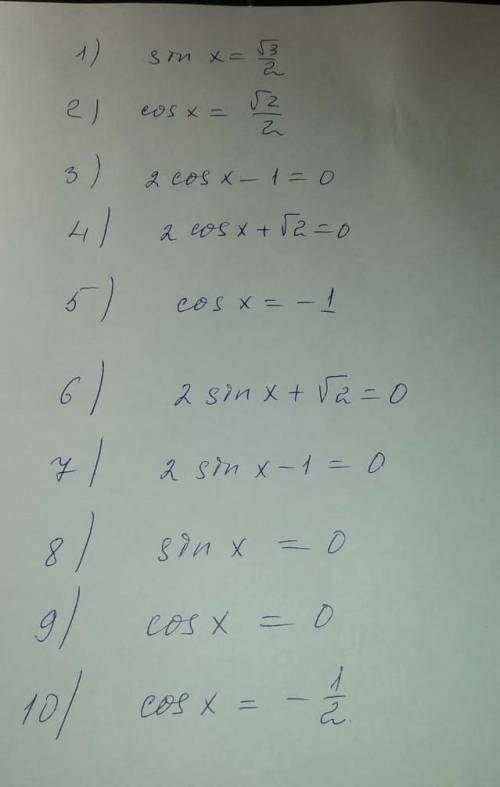 1) sin x = √3/2
2) cos x = √2/2
3) 2 cos x – 1 = 0
4) 2 cos x + √2 = 0
5) cos x = – 1
6) 2 sin x + √2 = 0
7) 2 sin x – 1 = 0
8) sin x = 0
9) cos x = 0
10) cos x = – 1/2.